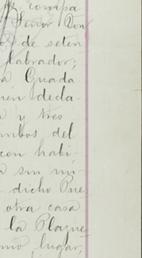 compa
Señor Don
de seten
labrador;
a Guada
decla-
y tres
mbos del
con habi
sin mi
dicho Pue
otra casa
la Plazue
mo lugar,